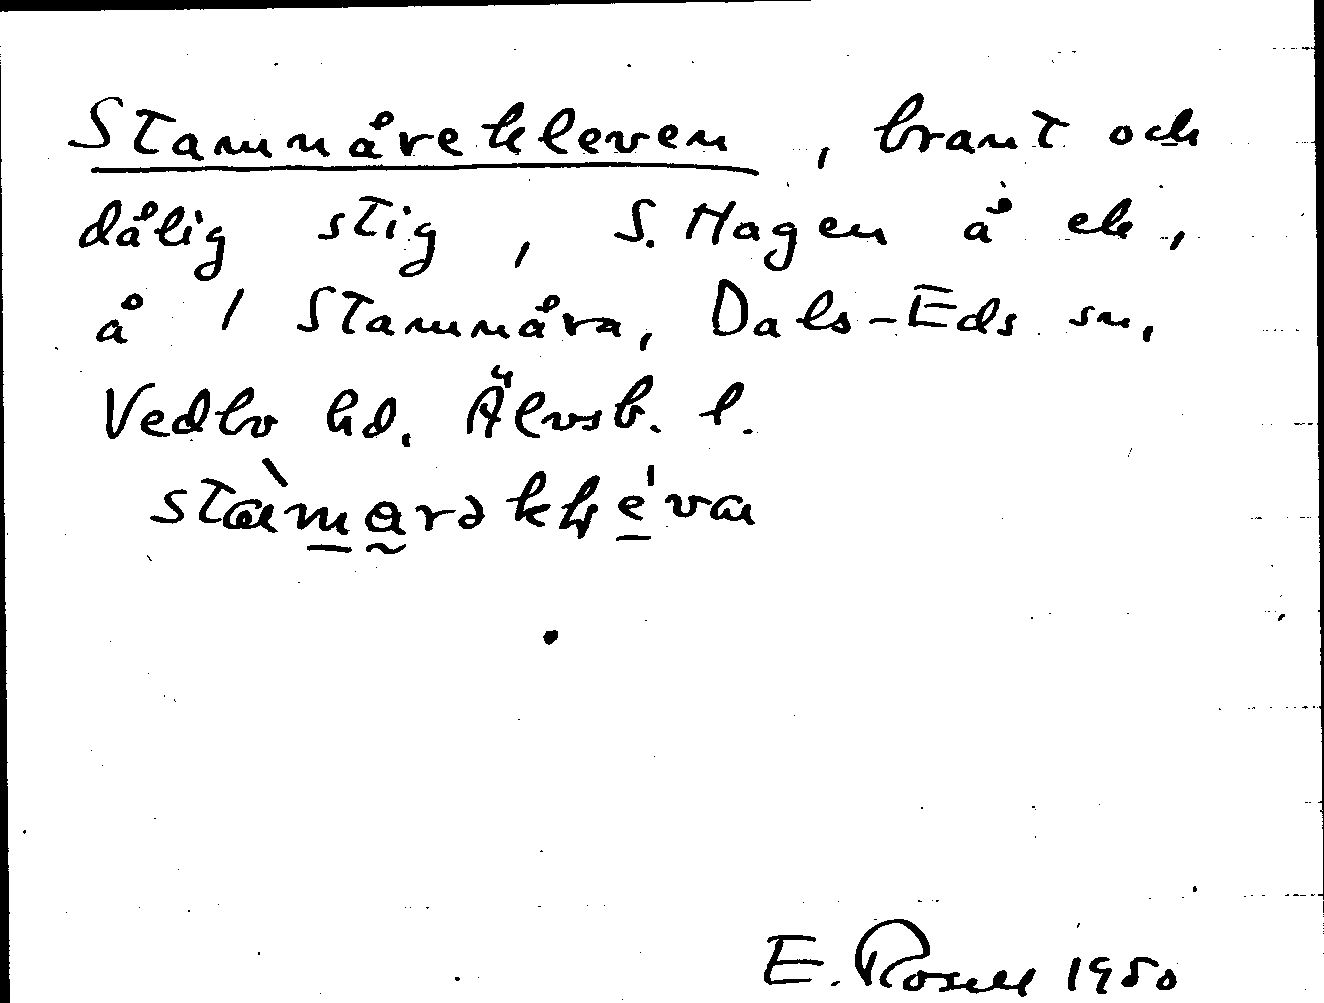 Stammårekleven, brant och
dålig stig, S. Hagen å ek,
å 1 Stammåra, Dals-Eds sn,
Vedbo hd. Älvsb. l.
E. Rosell 1950